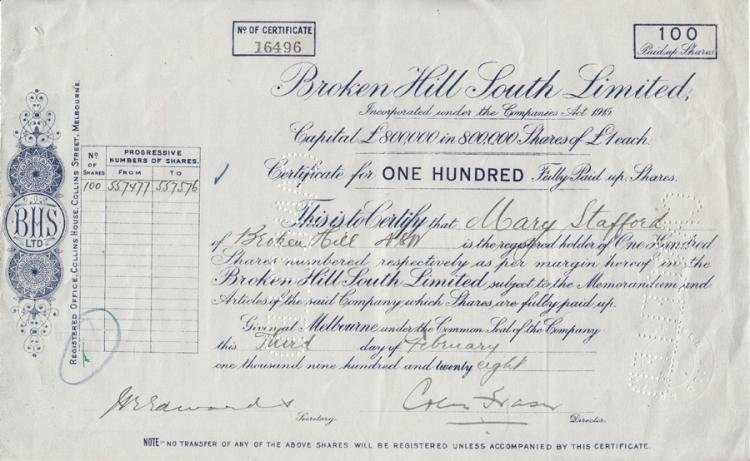 Nº OF CERTIFICATE
16496
100
Paid up Shares
Broken Hill South Limited,
Incorporated under the Companies Act 1915
Capital £800,000 in 800,000 Shares of £1 each.
Certificate for ONE HUNDRED Fully Paid up Shares.
This is to Certify that Mary Stafford
of Broken Hill NSW is the registered holder of One Hundred
Shares numbered respectively as per margin hereof in the
Broken Hill South Limited, subject to the Memorandum and
Articles of the said Company which Shares are fully paid up.
Given at Melbourne under the Common Seal of the Company
this Third day of February
one thousand nine hundred and twenty eight
Secretary.
Colin Fraser
Director.
NOTE - NO TRANSFER OF ANY OF THE ABOVE SHARES WILL BE REGISTERED UNLESS ACCOMPANIED BY THIS CERTIFICATE.
BHS
LTD
REGISTERED OFFICE, COLLINS HOUSE, COLLINS STREET, MELBOURNE.
Nº OF SHARES
PROGRESSIVE NUMBERS OF SHARES.
FROM TO
100 557477 557576